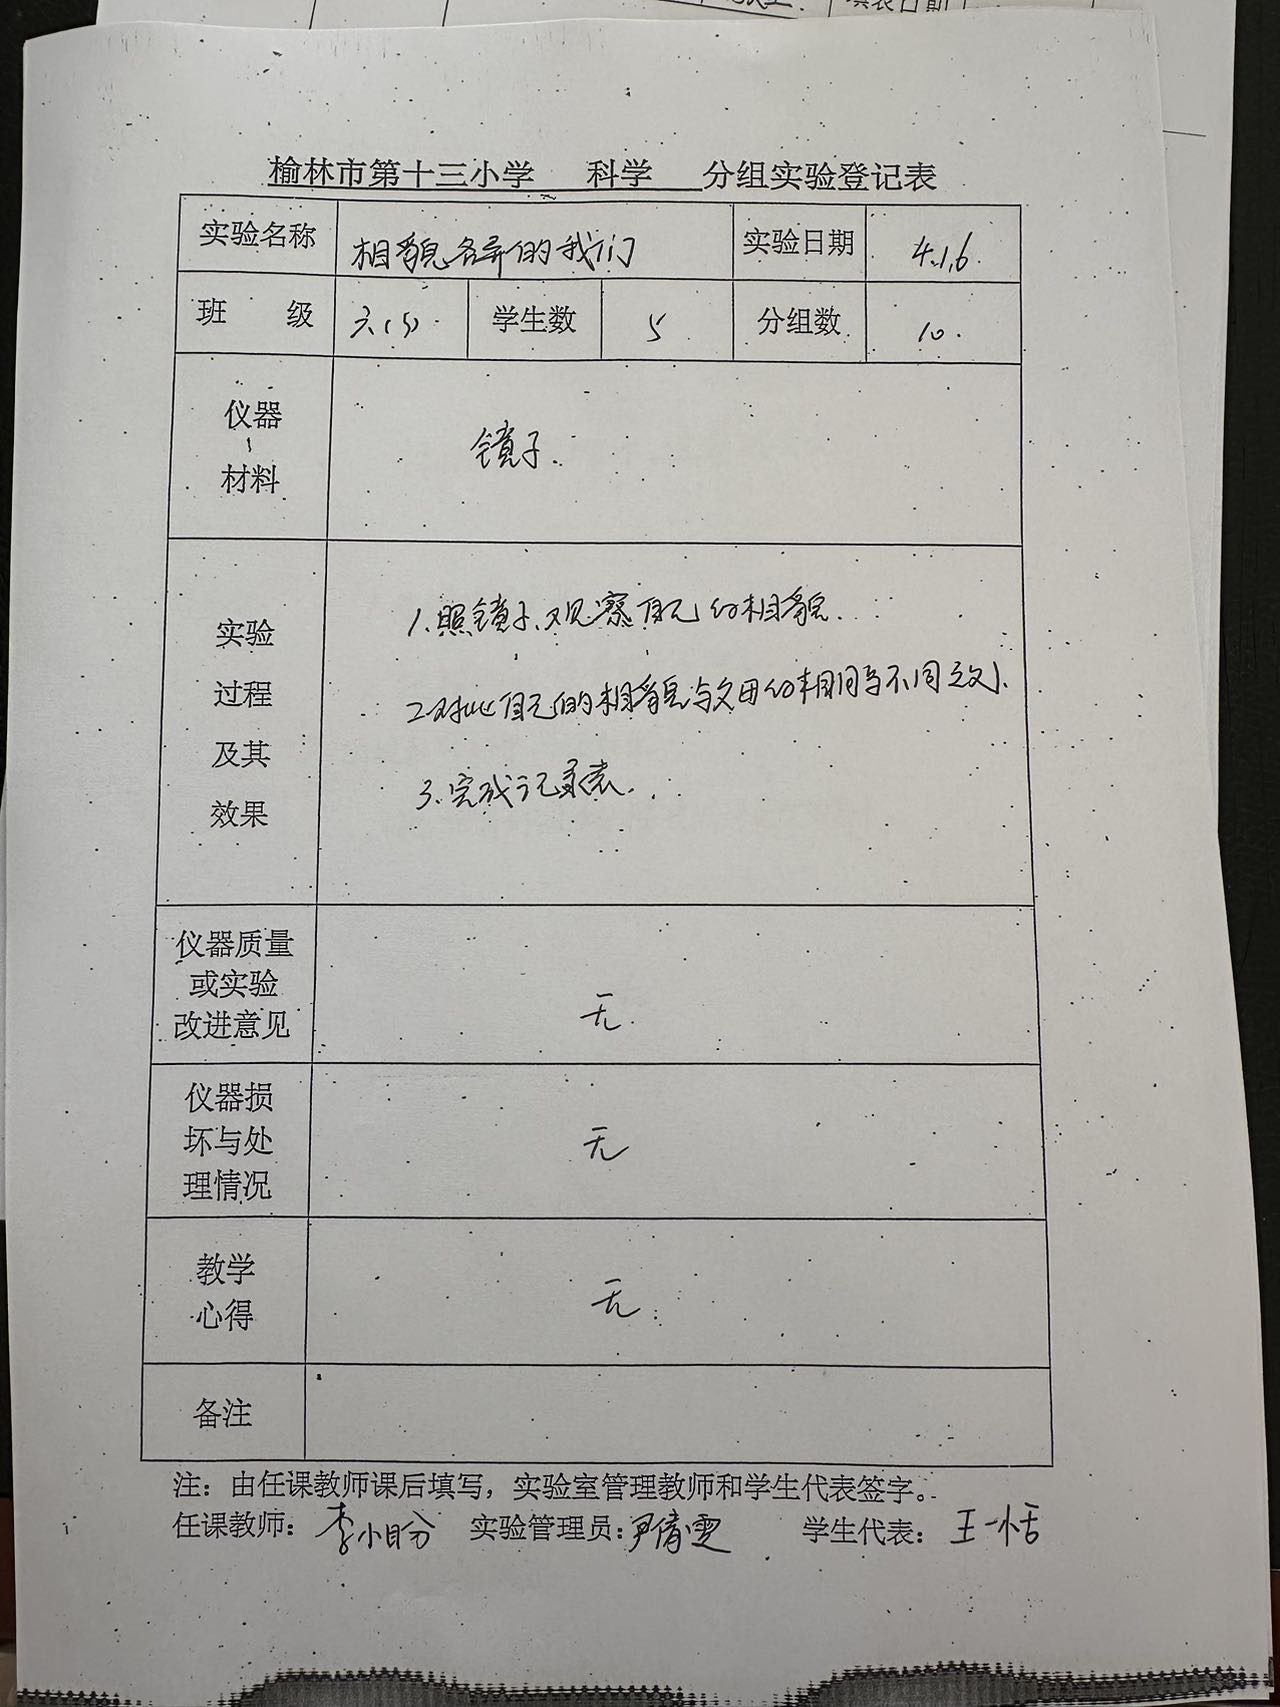 填表日期
榆林市第十三小学 科学 分组实验登记表
实验名称 相貌各异的我们 实验日期 4.1,6.
班 级 六(5) 学生数 5 分组数 10.
仪器、材料 镜子.
实验过程及其效果
1.照镜子、观察自己的相貌.
2.对比自己的相貌与父母的相同与不同之处、
3.完成记录表.
仪器质量或实验改进意见 无.
仪器损坏与处理情况 无
教学心得 无.
备注
注：由任课教师课后填写，实验室管理教师和学生代表签字。
任课教师：李小盼 实验管理员：尹倩雯 学生代表：王一恬